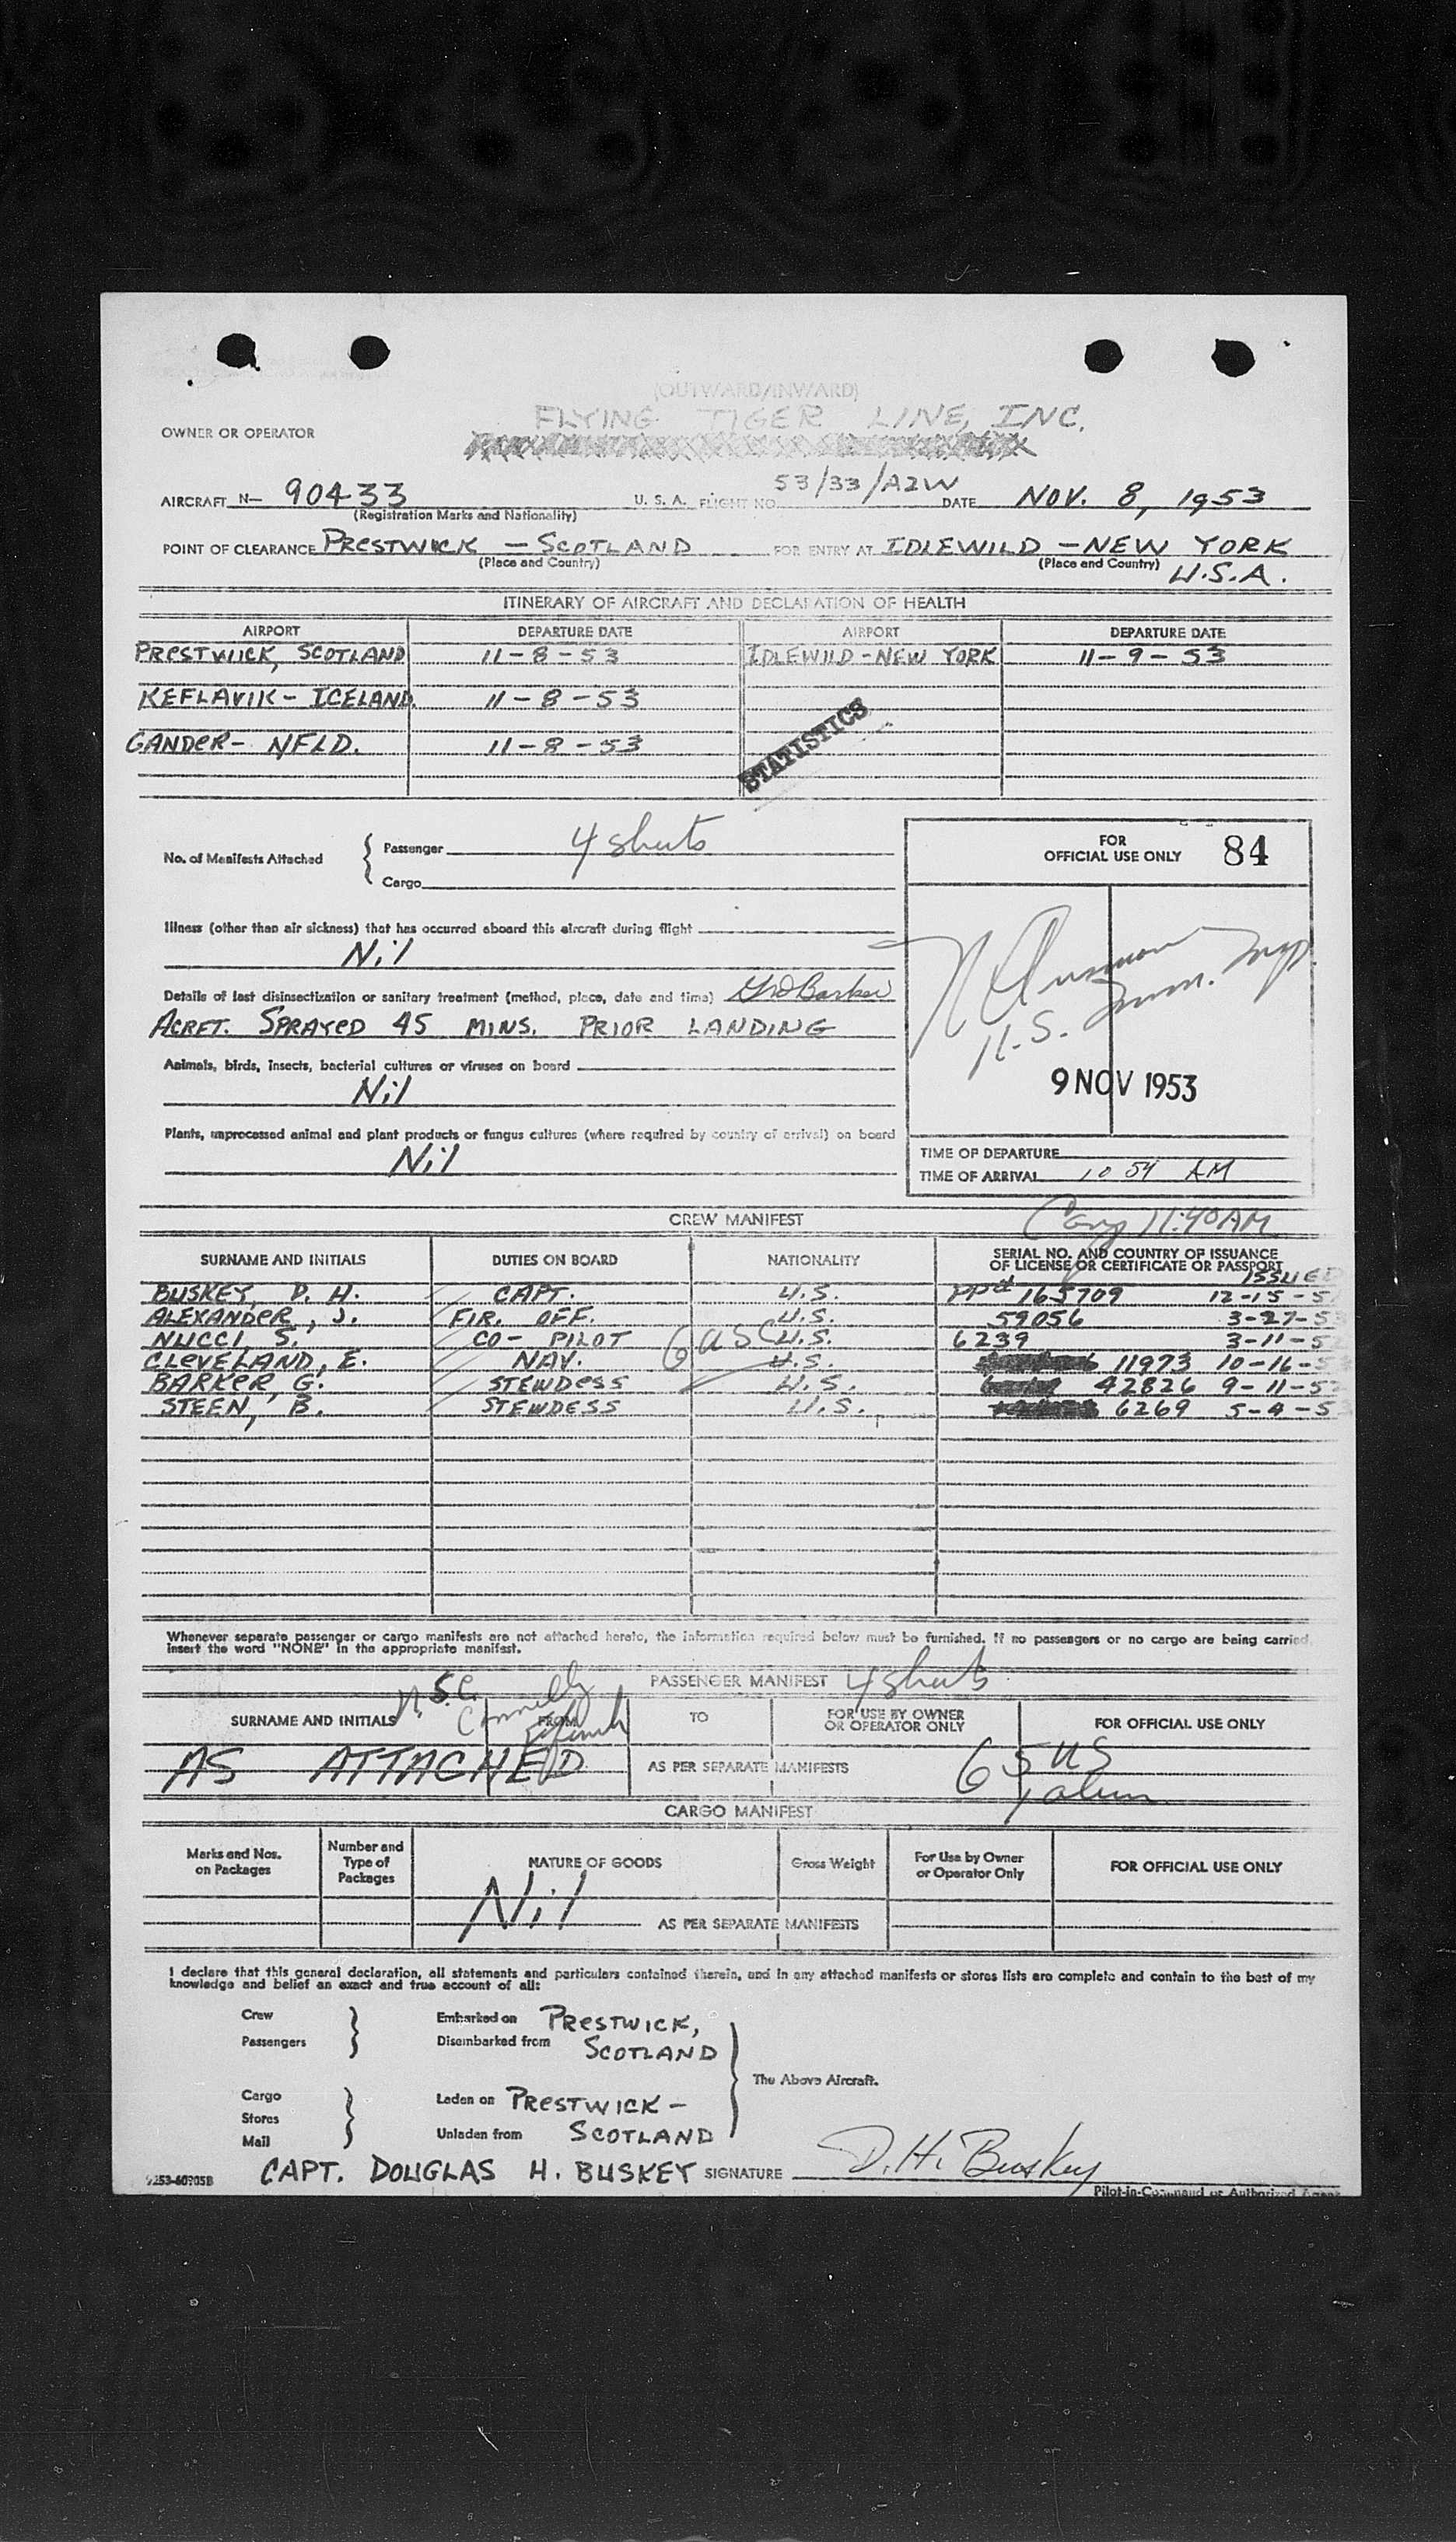 (OUTWARD/INWARD)
FLYING TIGER LINE, INC.
OWNER OR OPERATOR
AIRCRAFT N- 90433 U. S. A. FLIGHT NO. 53/33/A2W DATE NOV. 8, 1953
(Registration Marks and Nationality)
POINT OF CLEARANCE PRESTWICK - SCOTLAND FOR ENTRY AT IDLEWILD - NEW YORK
(Place and Country) (Place and Country) U.S.A.
ITINERARY OF AIRCRAFT AND DECLARATION OF HEALTH
AIRPORT DEPARTURE DATE AIRPORT DEPARTURE DATE
PRESTWICK, SCOTLAND 11-8-53 IDLEWILD - NEW YORK 11-9-53
KEFLAVIK - ICELAND. 11-8-53
GANDER - NFLD. 11-8-53
STATISTICS
No. of Manifests Attached { Passenger 4 sheets
Cargo
FOR OFFICIAL USE ONLY 84
Illness (other than air sickness) that has occurred aboard this aircraft during flight
Nil
Details of last disinsectization or sanitary treatment (method, place, date and time) Barker
ACRFT. SPRAYED 45 MINS. PRIOR LANDING
Animals, birds, insects, bacterial cultures or viruses on board
Nil
Plants, unprocessed animal and plant products or fungus cultures (where required by country of arrival) on board
Nil
U.S. Imm. Insp.
9 NOV 1953
TIME OF DEPARTURE
TIME OF ARRIVAL 10 54 AM
11:40 AM
CREW MANIFEST
SURNAME AND INITIALS DUTIES ON BOARD NATIONALITY SERIAL NO. AND COUNTRY OF ISSUANCE
OF LICENSE OR CERTIFICATE OR PASSPORT
ISSUED
BUSKEY, D. H. CAPT. U.S. PP# 165709 12-15-5
ALEXANDER, J. FIR. OFF. U.S. 59056 3-27-5
NUCCI, S. CO-PILOT U.S. 6239 3-11-5
6 USC
CLEVELAND, E. NAV. U.S. 11973 10-16-5
BARKER, G. STEWDESS U.S. 42826 9-11-5
STEEN, B. STEWDESS U.S. 6269 5-4-5
Whenever separate passenger or cargo manifests are not attached hereto, the information required below must be furnished. If no passengers or no cargo are being carried,
insert the word "NONE" in the appropriate manifest.
PASSENGER MANIFEST 4 sheets
Connelly
SURNAME AND INITIALS FROM TO FOR USE BY OWNER
OR OPERATOR ONLY FOR OFFICIAL USE ONLY
AS ATTACHED AS PER SEPARATE MANIFESTS 65 US
1 alien
CARGO MANIFEST
Marks and Nos. on Packages Number and Type of Packages NATURE OF GOODS Gross Weight For Use by Owner or Operator Only FOR OFFICIAL USE ONLY
Nil AS PER SEPARATE MANIFESTS
I declare that this general declaration, all statements and particulars contained therein, and in any attached manifests or stores lists are complete and contain to the best of my
knowledge and belief an exact and true account of all:
Crew Embarked on PRESTWICK,
Passengers Disembarked from SCOTLAND
The Above Aircraft.
Cargo Laden on PRESTWICK -
Stores
Mail Unladen from SCOTLAND
CAPT. DOUGLAS H. BUSKEY SIGNATURE D. H. Buskey
Pilot-in-Command or Authorized Agent